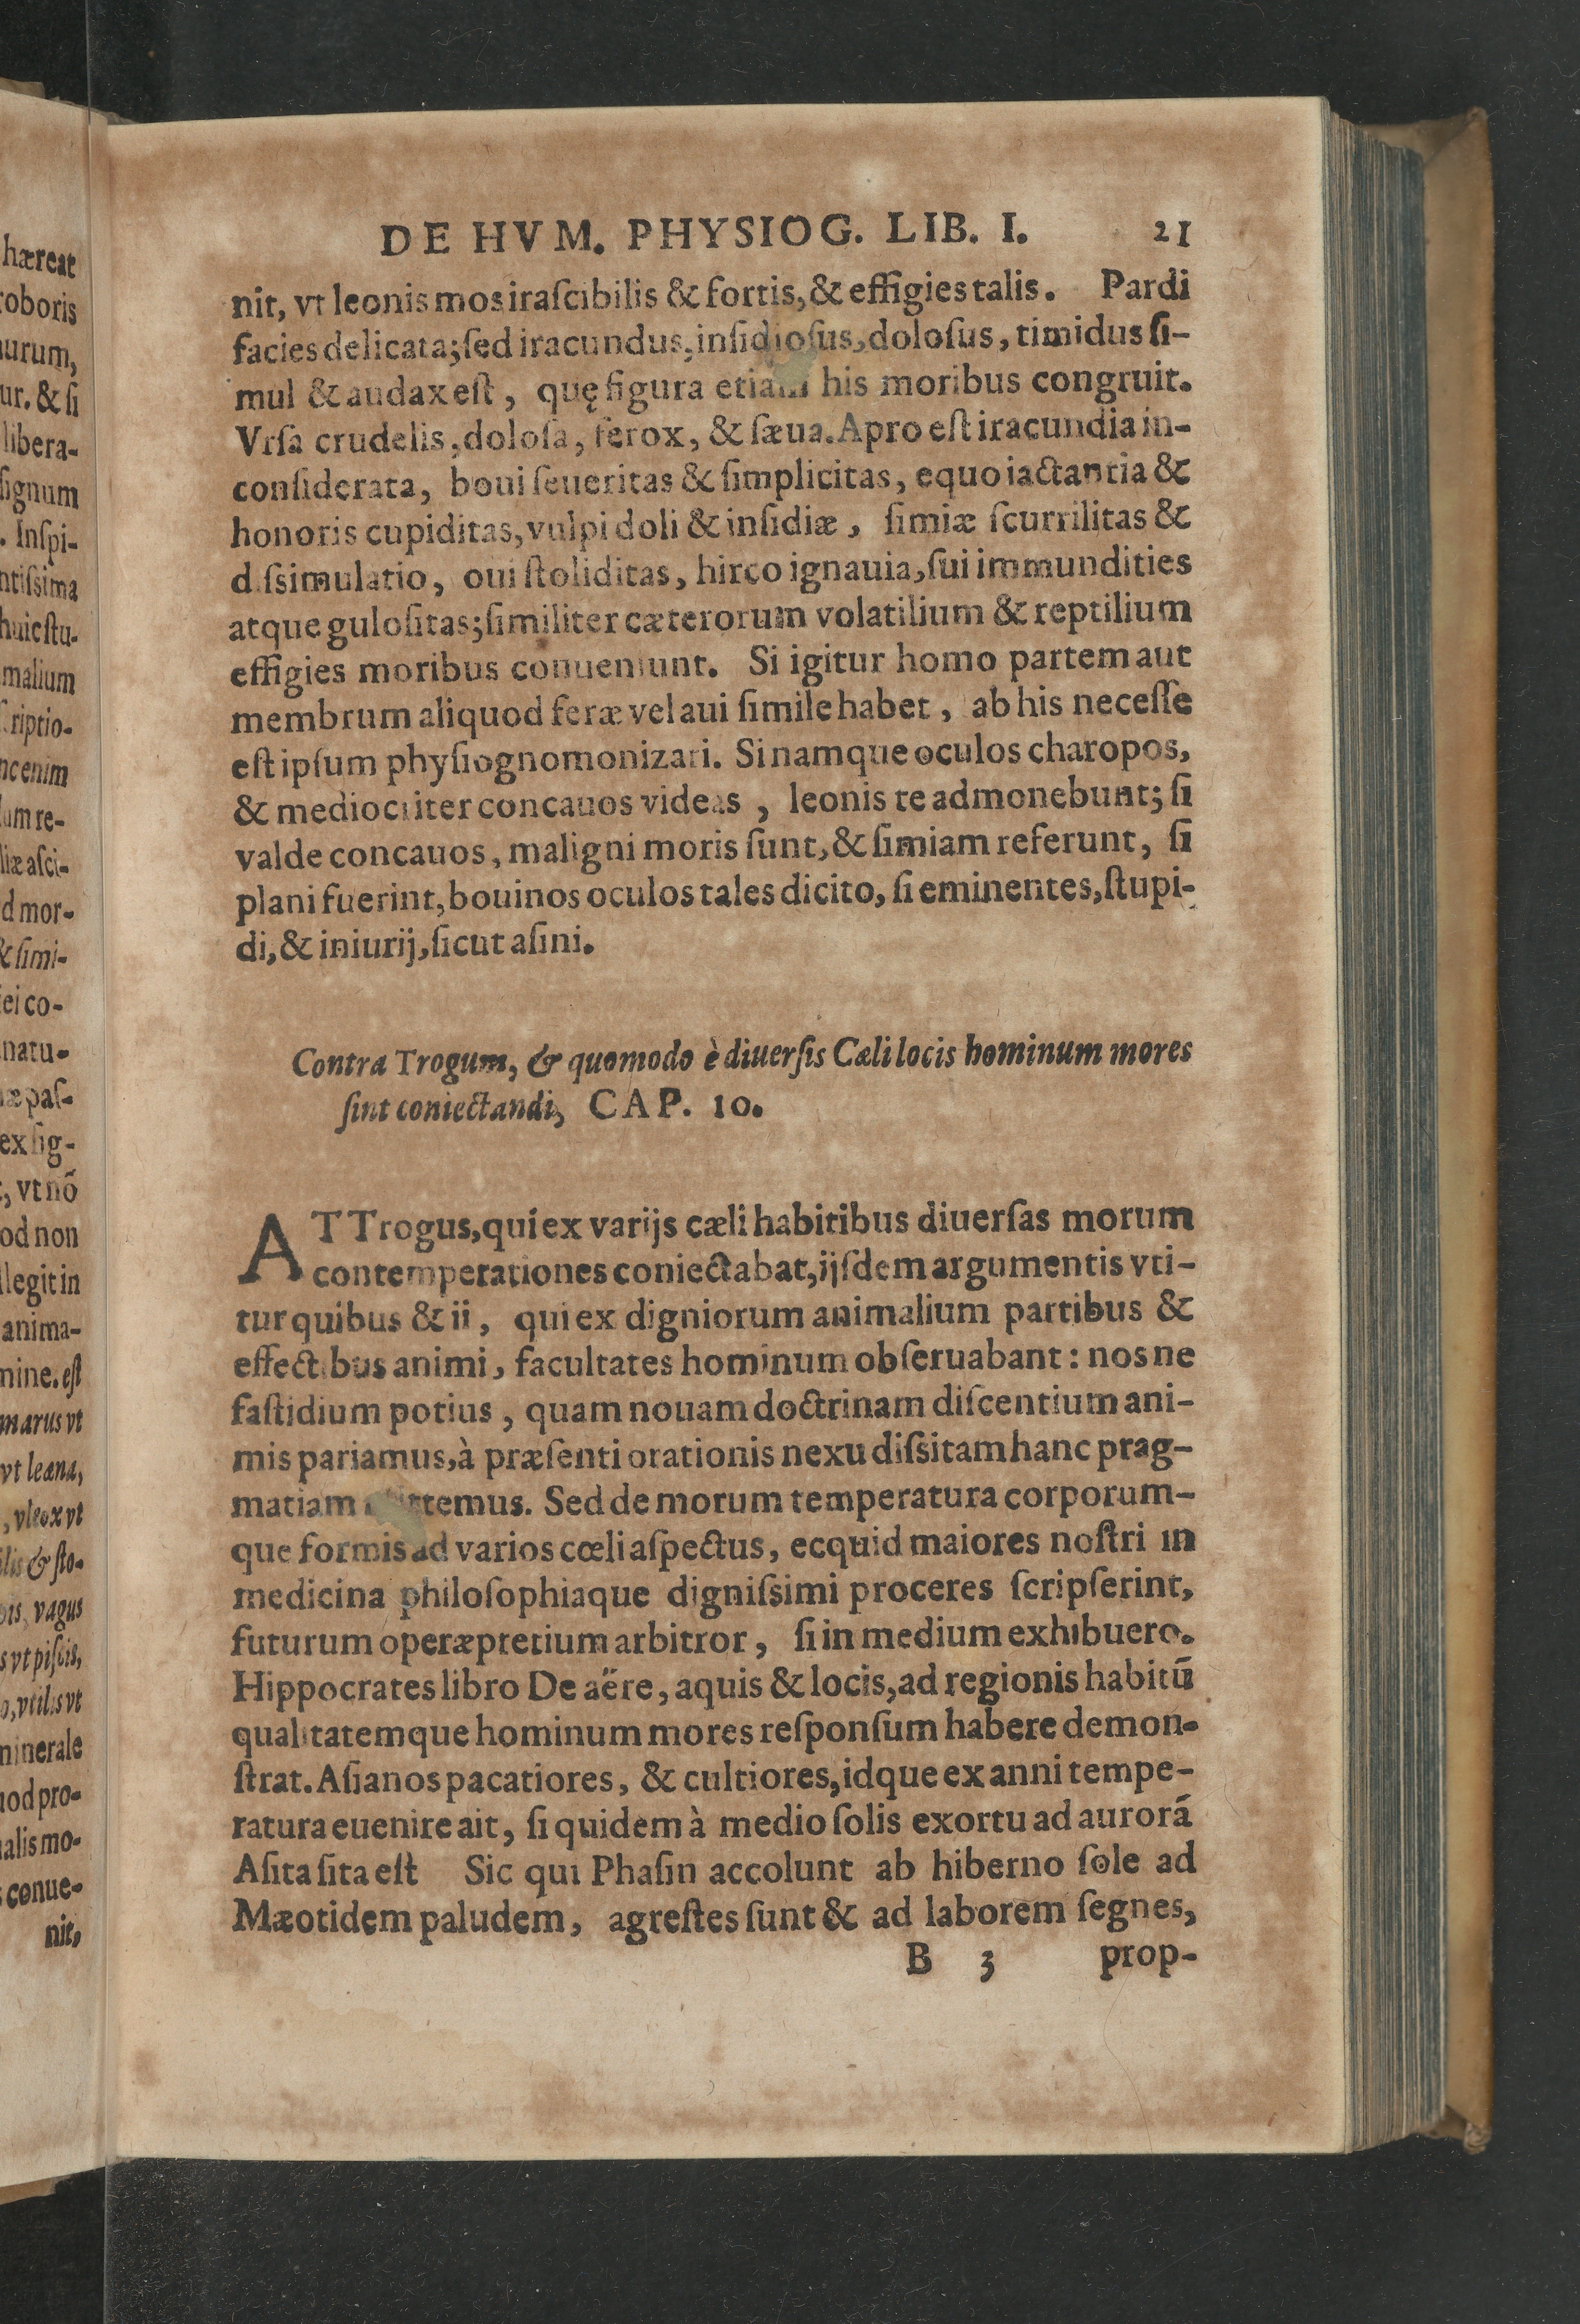 hæreat
roboris
urum,
ur. & ſi
libera-
ſignum
. Inſpi-
ntiſsima
huic ſtu-
malium
ſcriptio-
nc enim
lum re-
liæ aſci-
d mor-
& ſimi-
iei co-
natu-
æ paſ-
ex ſig-
, vt nõ
od non
llegit in
anima-
mine. eſt
marus vt
vt leæna,
, vleox vt
ilis & ſto-
ois, vagus
s vt piſcis,
o, vtilis vt
minerale
uod pro-
nalis mo-
conue-
nit,
DE HVM. PHYSIOG. LIB. I. 21
nit, vt leonis mos iraſcibilis & fortis, & effigies talis. Pardi
facies delicata; ſed iracundus, inſidioſus, doloſus, timidus ſi-
mul & audax eſt, quę figura etiam his moribus congruit.
Vrſa crudelis, doloſa, ferox, & ſæua. Apro eſt iracundia in-
conſiderata, boui ſeueritas & ſimplicitas, equo iactantia &
honoris cupiditas, vulpi doli & inſidiæ, ſimiæ ſcurrilitas &
diſsimulatio, oui ſtoliditas, hirco ignauia, ſui immundities
atque guloſitas; ſimiliter cæterorum volatilium & reptilium
effigies moribus conueniunt. Si igitur homo partem aut
membrum aliquod feræ vel aui ſimile habet, ab his neceſſe
eſt ipſum phyſiognomonizari. Si namque oculos charopos,
& mediocriter concauos videas, leonis te admonebunt; ſi
valde concauos, maligni moris ſunt, & ſimiam referunt, ſi
plani fuerint, bouinos oculos tales dicito, ſi eminentes, ſtupi-
di, & iniurij, ſicut aſini.
Contra Trogum, & quomodo è diuerſis Cæli locis hominum mores
ſint coniectandi, CAP. 10.
AT Trogus, qui ex varijs cæli habitibus diuerſas morum
contemperationes coniectabat, ijſdem argumentis vti-
tur quibus & ii, qui ex digniorum animalium partibus &
effectibus animi, facultates hominum obſeruabant: nos ne
faſtidium potius, quam nouam doctrinam diſcentium ani-
mis pariamus, à præſenti orationis nexu diſsitam hanc prag-
matiam Sed de morum temperatura corporum-
que formis ad varios cœli aſpectus, ecquid maiores noſtri in
medicina philoſophiaque digniſsimi proceres ſcripſerint,
futurum operæpretium arbitror, ſi in medium exhibuero.
Hippocrates libro De aëre, aquis & locis, ad regionis habitũ
qualitatemque hominum mores reſponſum habere demon-
ſtrat. Aſianos pacatiores, & cultiores, idque ex anni tempe-
ratura euenire ait, ſi quidem à medio ſolis exortu ad aurorã
Aſita ſita eſt Sic qui Phaſin accolunt ab hiberno ſole ad
Mæotidem paludem, agreſtes ſunt & ad laborem ſegnes,
B 3 prop-